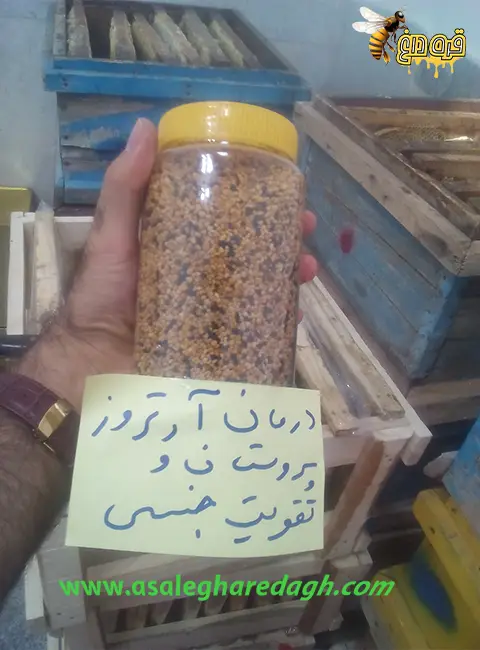 قره داغ
درمان آرتروز
پروستات و
تقویت جنسی
www.asalegharedagh.com